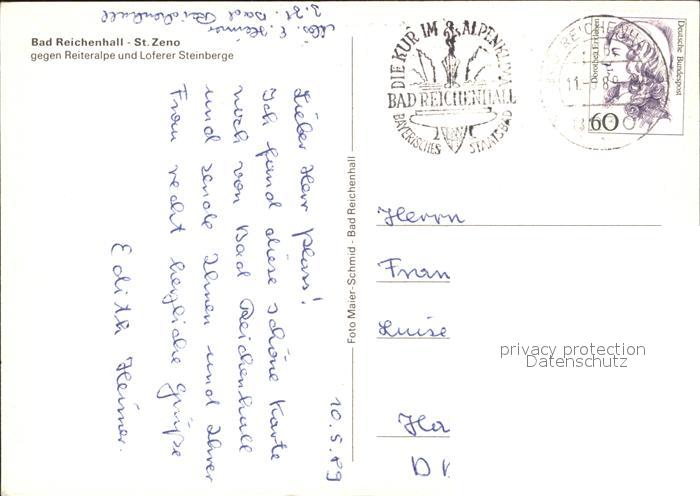 Abs. E. Heimer
z. Zt. Bad Reichenhall
Bad Reichenhall - St. Zeno
gegen Reiteralpe und Loferer Steinberge
10.5.89
Lieber Herr Plass!
Ich fand diese schöne Karte
noch von Bad Reichenhall
und sende Ihnen und Ihrer
Frau recht herzliche Grüße
Edith Heimer.
Foto Maier-Schmid - Bad Reichenhall
DIE KUR IM ALPENKLIMA
BAD REICHENHALL
BAYERISCHES STAATSBAD
BAD REICHENHALL
11.-5.89
Deutsche Bundespost
Dorothea Erxleben
60
Herrn
Frau
Luise
privacy protection
Datenschutz